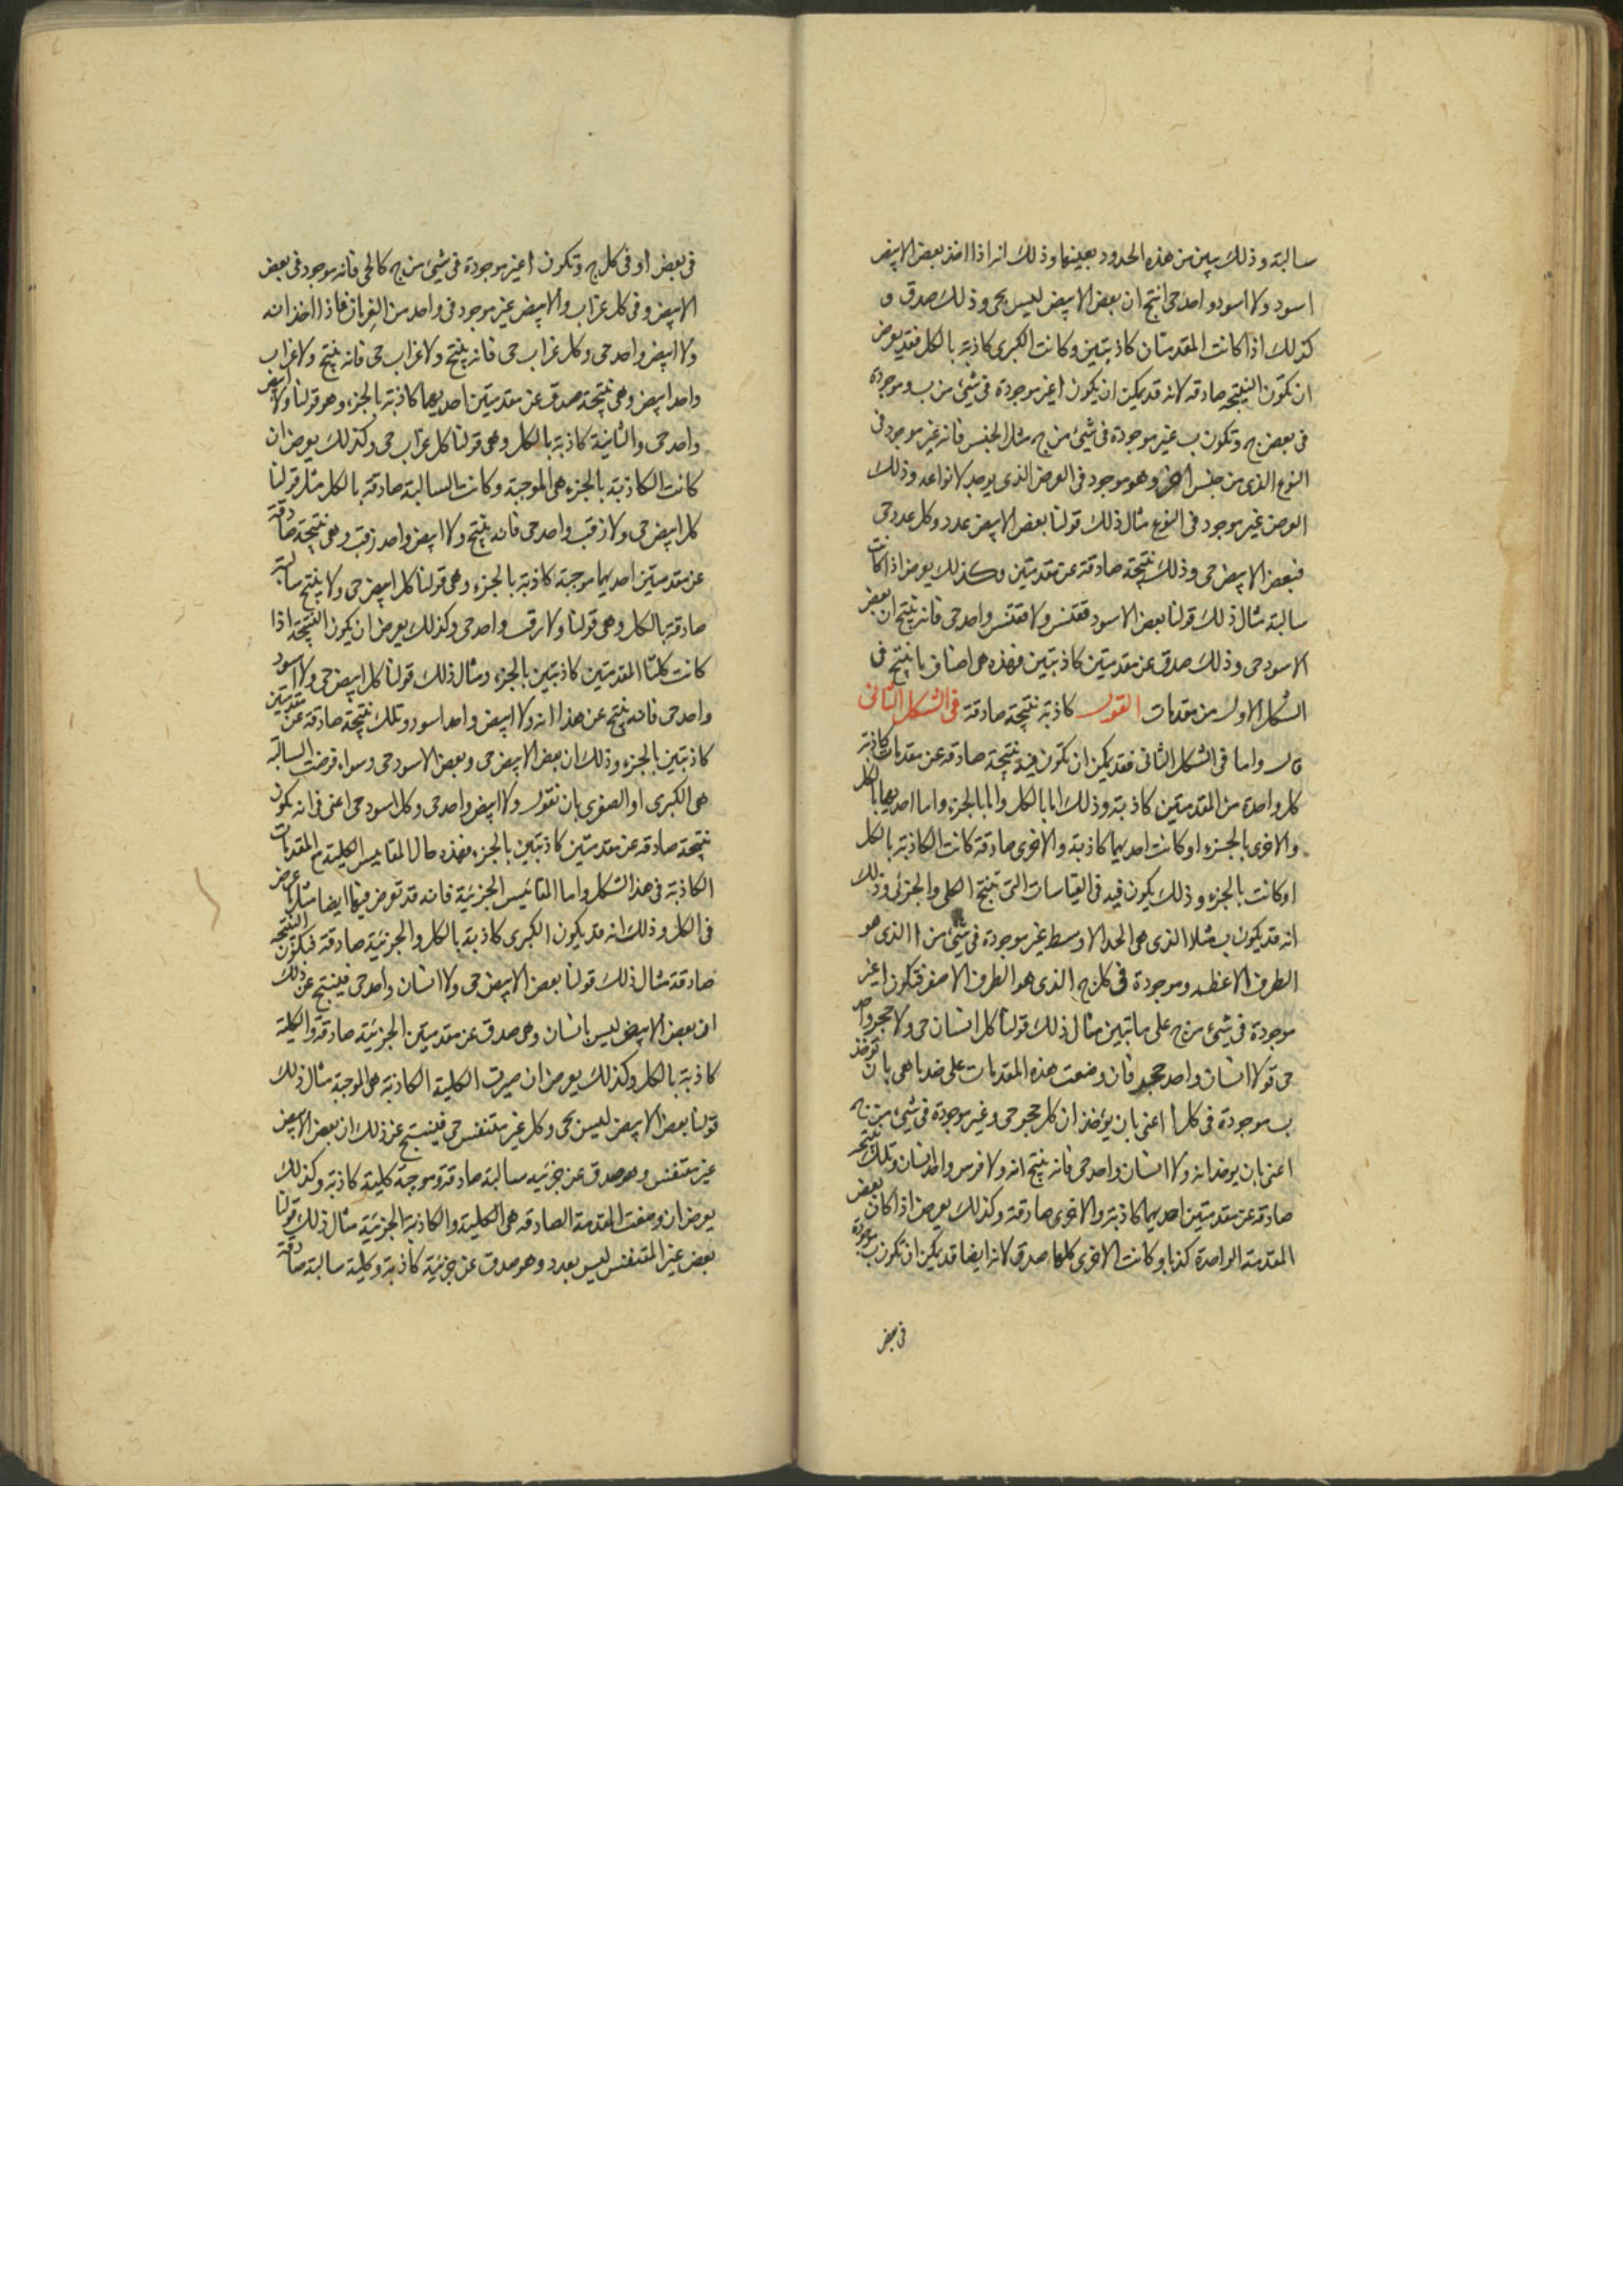 سالبة وذلك يبين من هذه الحدود بعينها وذلك انه اذا اخذ بعض الابيض
اسود ولا اسود واحد حى انتج ان بعض الابيض ليس بحى وذلك صدق و
كذلك اذا كانت المقدمتان كاذبتين وكانت الكبرى كاذبة بالكل فقد يعرض
ان تكون النتيجة صادقه لانه قد يمكن ان يكون ا غير موجودة فى شيئ من ب وموجودة
فى بعض ج وتكون ب غير موجودة فى شيئ من ج مثل الجنس فانه غير موجود فى
النوع الذى من جنس اخر وهو موجود فى العرض الذى يوجد لانواعه وذلك
العرض غير موجود فى النوع مثال ذلك قولنا بعض الابيض عدد وكل عدد حى
فبعض الابيض حى وذلك نتيجة صادقه عن مقدمتين وكذلك يعرض اذا كانت
سالبة مثال ذلك قولنا بعض الاسود ققنس ولا ققنس واحد حى فانه ينتج ان بعض
الاسود حى وذلك صدق عن مقدمتين كاذبتين فهذه هى اصناف ما ينتج فى
الشكل الاول من مقدمات القول كاذبة نتيجة صادقة فى الشكل الثانى
قال واما فى الشكل الثانى فقد يمكن ان تكون فيه نتيجة صادقه عن مقدمات كاذبة
كل واحدة من المقدمتين كاذبة وذلك اما بالكل واما بالجزء واما احديهما بالكل
والاخرى بالجزء او كانت احديهما كاذبة والاخرى صادقة كانت الكاذبة بالكل
او كانت بالجزء وذلك يكون فيه فى القياسات التى تنتج الكلى والجزئى وذلك
انه قد يكون ب مثلا الذى هى الحد الاوسط غير موجودة فى شيئ من ا الذى هو
الطرف الاعظم وموجودة فى كل ج الذى هو الطرف الاصغر فتكون ا غير
موجودة فى شيئ من ج على ما تبين مثال ذلك قولنا كل انسان حى ولا حجر واحد
حى فولا انسان واحد حجر فان وضعت هذه المقدمات على ضد ما هى بان توخذ
ب موجودة فى كل ا اعنى بان يؤخذ ان كل حجر حى وغير موجودة فى شيئ من ج
اعنى بان يوخذ انه ولا انسان واحد حى فانه ينتج انه ولا فرس واحد انسان وتلك نتيجة
صادقه عن مقدمتين احديهما كاذبة والاخرى صادقة وكذلك يعرض اذا كان بعض
المقدمة الواحدة كذبا وكانت الاخرى كلها صدق لانه ايضا قد يمكن ان تكون ب موجودة
فى بعض
فى بعض ا وفى كل ج وتكون ا غير موجودة فى شيئ من ج كالحى فانه موجود فى بعض
الابيض وفى كل غراب والابيض غير موجود فى واحد من الغربان فاذا اخذ انه
ولا ابيض واحد حى وكل غراب حى فانه ينتج ولا غراب حى فانه ينتج ولا غراب
واحد ابيض وهى نتيجة صدق عن مقدمتين احديهما كاذبة بالجزء وهو قولنا ولا ابيض
واحد حى والثانية كاذبة بالكل وهى قولنا كل غراب حى وكذلك يعرض ان
كانت الكاذبة بالجزء هى الموجبة وكانت السالبة صادقة بالكل مثل قولنا
كل ابيض حى ولا زفت واحد حى فانه ينتج ولا ابيض واحد زفت وهى نتيجة صادقة
عن مقدمتين احديهما موجبة كاذبة بالجزء وهى قولنا كل ابيض حى ولا ينتج سالبة
صادقة بالكل وهى قولنا ولا زفت واحد حى وكذلك يعرض ان يكون النتيجة اذا
كانت كلتا المقدمتين كاذبتين بالجزء ومثال ذلك قولنا كل ابيض حى ولا اسود
واحد حى فانه ينتج عن هذا انه ولا ابيض واحد اسود وتلك نتيجة صادقة عن مقدمتين
كاذبتين بالجزء وذلك ان بعض الابيض حى وبعض الاسود حى وسواء فرضت السالبة
هى الكبرى او الصغرى بان نقول ولا ابيض واحد حى وكل اسود حى اعنى فى انه يكون
نتيجة صادقه عن مقدمتين كاذبتين بالجزء فهذه حال المقاييس الكلية المقدمات
الكاذبة فى هذا الشكل واما المقائيس الجزئية فانه قد تعرض فيها ايضا مثل ما عرض
فى الكل وذلك انه قد يكون الكبرى كاذبة بالكل والجزئية صادقة فيكون النتيجة
صادقة مثال ذلك قولنا بعض الابيض حى ولا انسان واحد حى فينتج عن ذلك
ان بعض الابيض ليس بانسان وهى صدق عن مقدمتين الجزئية صادقة والكلية
كاذبة بالكل وكذلك يعرض ان صيرت الكلية الكاذبة هى الموجبة مثال ذلك
قولنا بعض الابيض ليس بحى وكل غير متنفس حى فينتج عن ذلك ان بعض الابيض
غير متنفس وهو صدق عن جزئيه سالبة صادقة وموجبة كلية كاذبة وكذلك
يعرض ان وضعت المقدمة الصادقه هى الكلية والكاذبة الجزئية مثال ذلك قولنا
بعض غير المتنفس ليس بعدد وهو صدق عن جزئية كاذبة وكلية سالبة صادقة